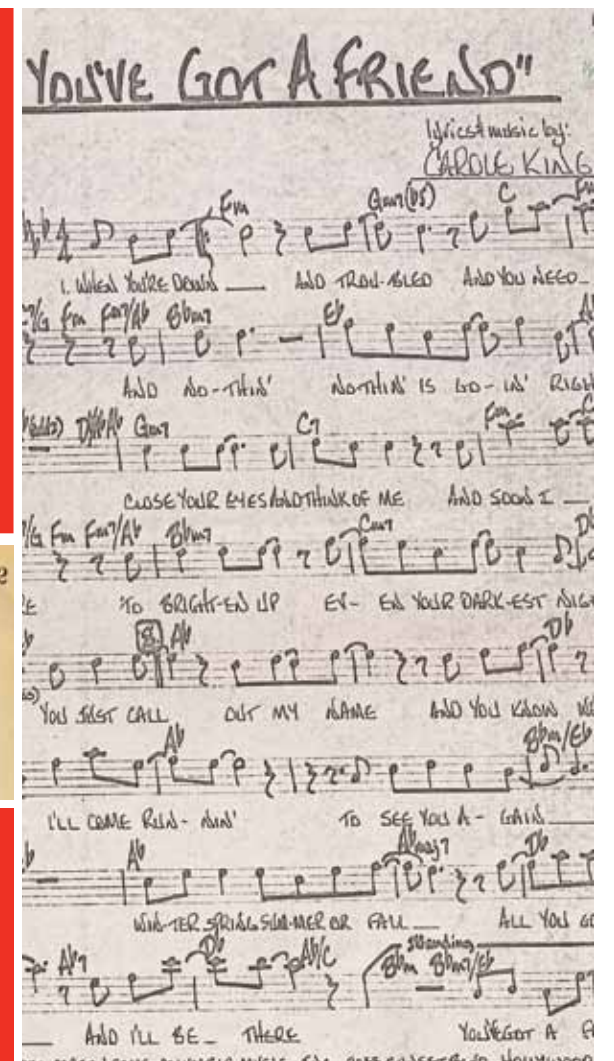 "YOU'VE GOT A FRIEND"
lyrics & music by:
CAROLE KING
Fm Gm7(b5) C Fm
1. WHEN YOU'RE DOWN ___ AND TROU-BLED AND YOU NEED_
7/G Fm Fm7/Ab Bbm7 Eb Ab
AND NO-THIN' NOTHIN' IS GO-IN' RIGH
Gm7 C7 Fm C
CLOSE YOUR EYES AND THINK OF ME AND SOON I ___
7/G Fm Fm7/Ab Bbm7 Cm7 Db
RE TO BRIGHT-EN UP EV- EN YOUR DARK-EST NIG
B Ab Db
YOU JUST CALL OUT MY NAME AND YOU KNOW
Ab Bbm/Eb
I'LL COME RUN- NIN' TO SEE YOU A- GAIN ___
Ab Abmaj7 Db
WIN-TER SPRING SUM-MER OR FALL ___ ALL YOU GO
Ab7 Db Ab/C Bbm Bbm7/Eb
___ AND I'LL BE_ THERE YOU'VE GOT A F
e